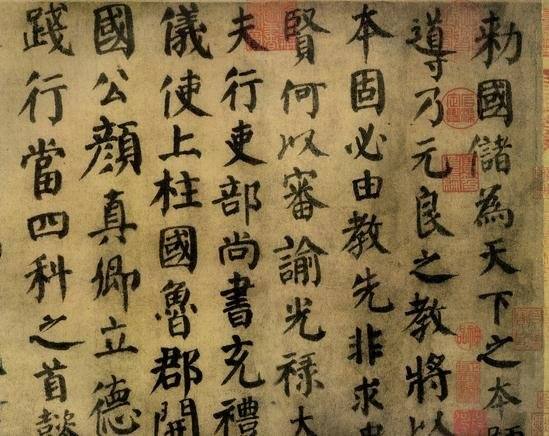 勑國儲為天下之本師
導乃元良之教將以
本固必由教先非求
賢何以審諭光祿大
夫行吏部尚書充禮
儀使上柱國魯郡開
國公顏真卿立德
踐行當四科之首懿